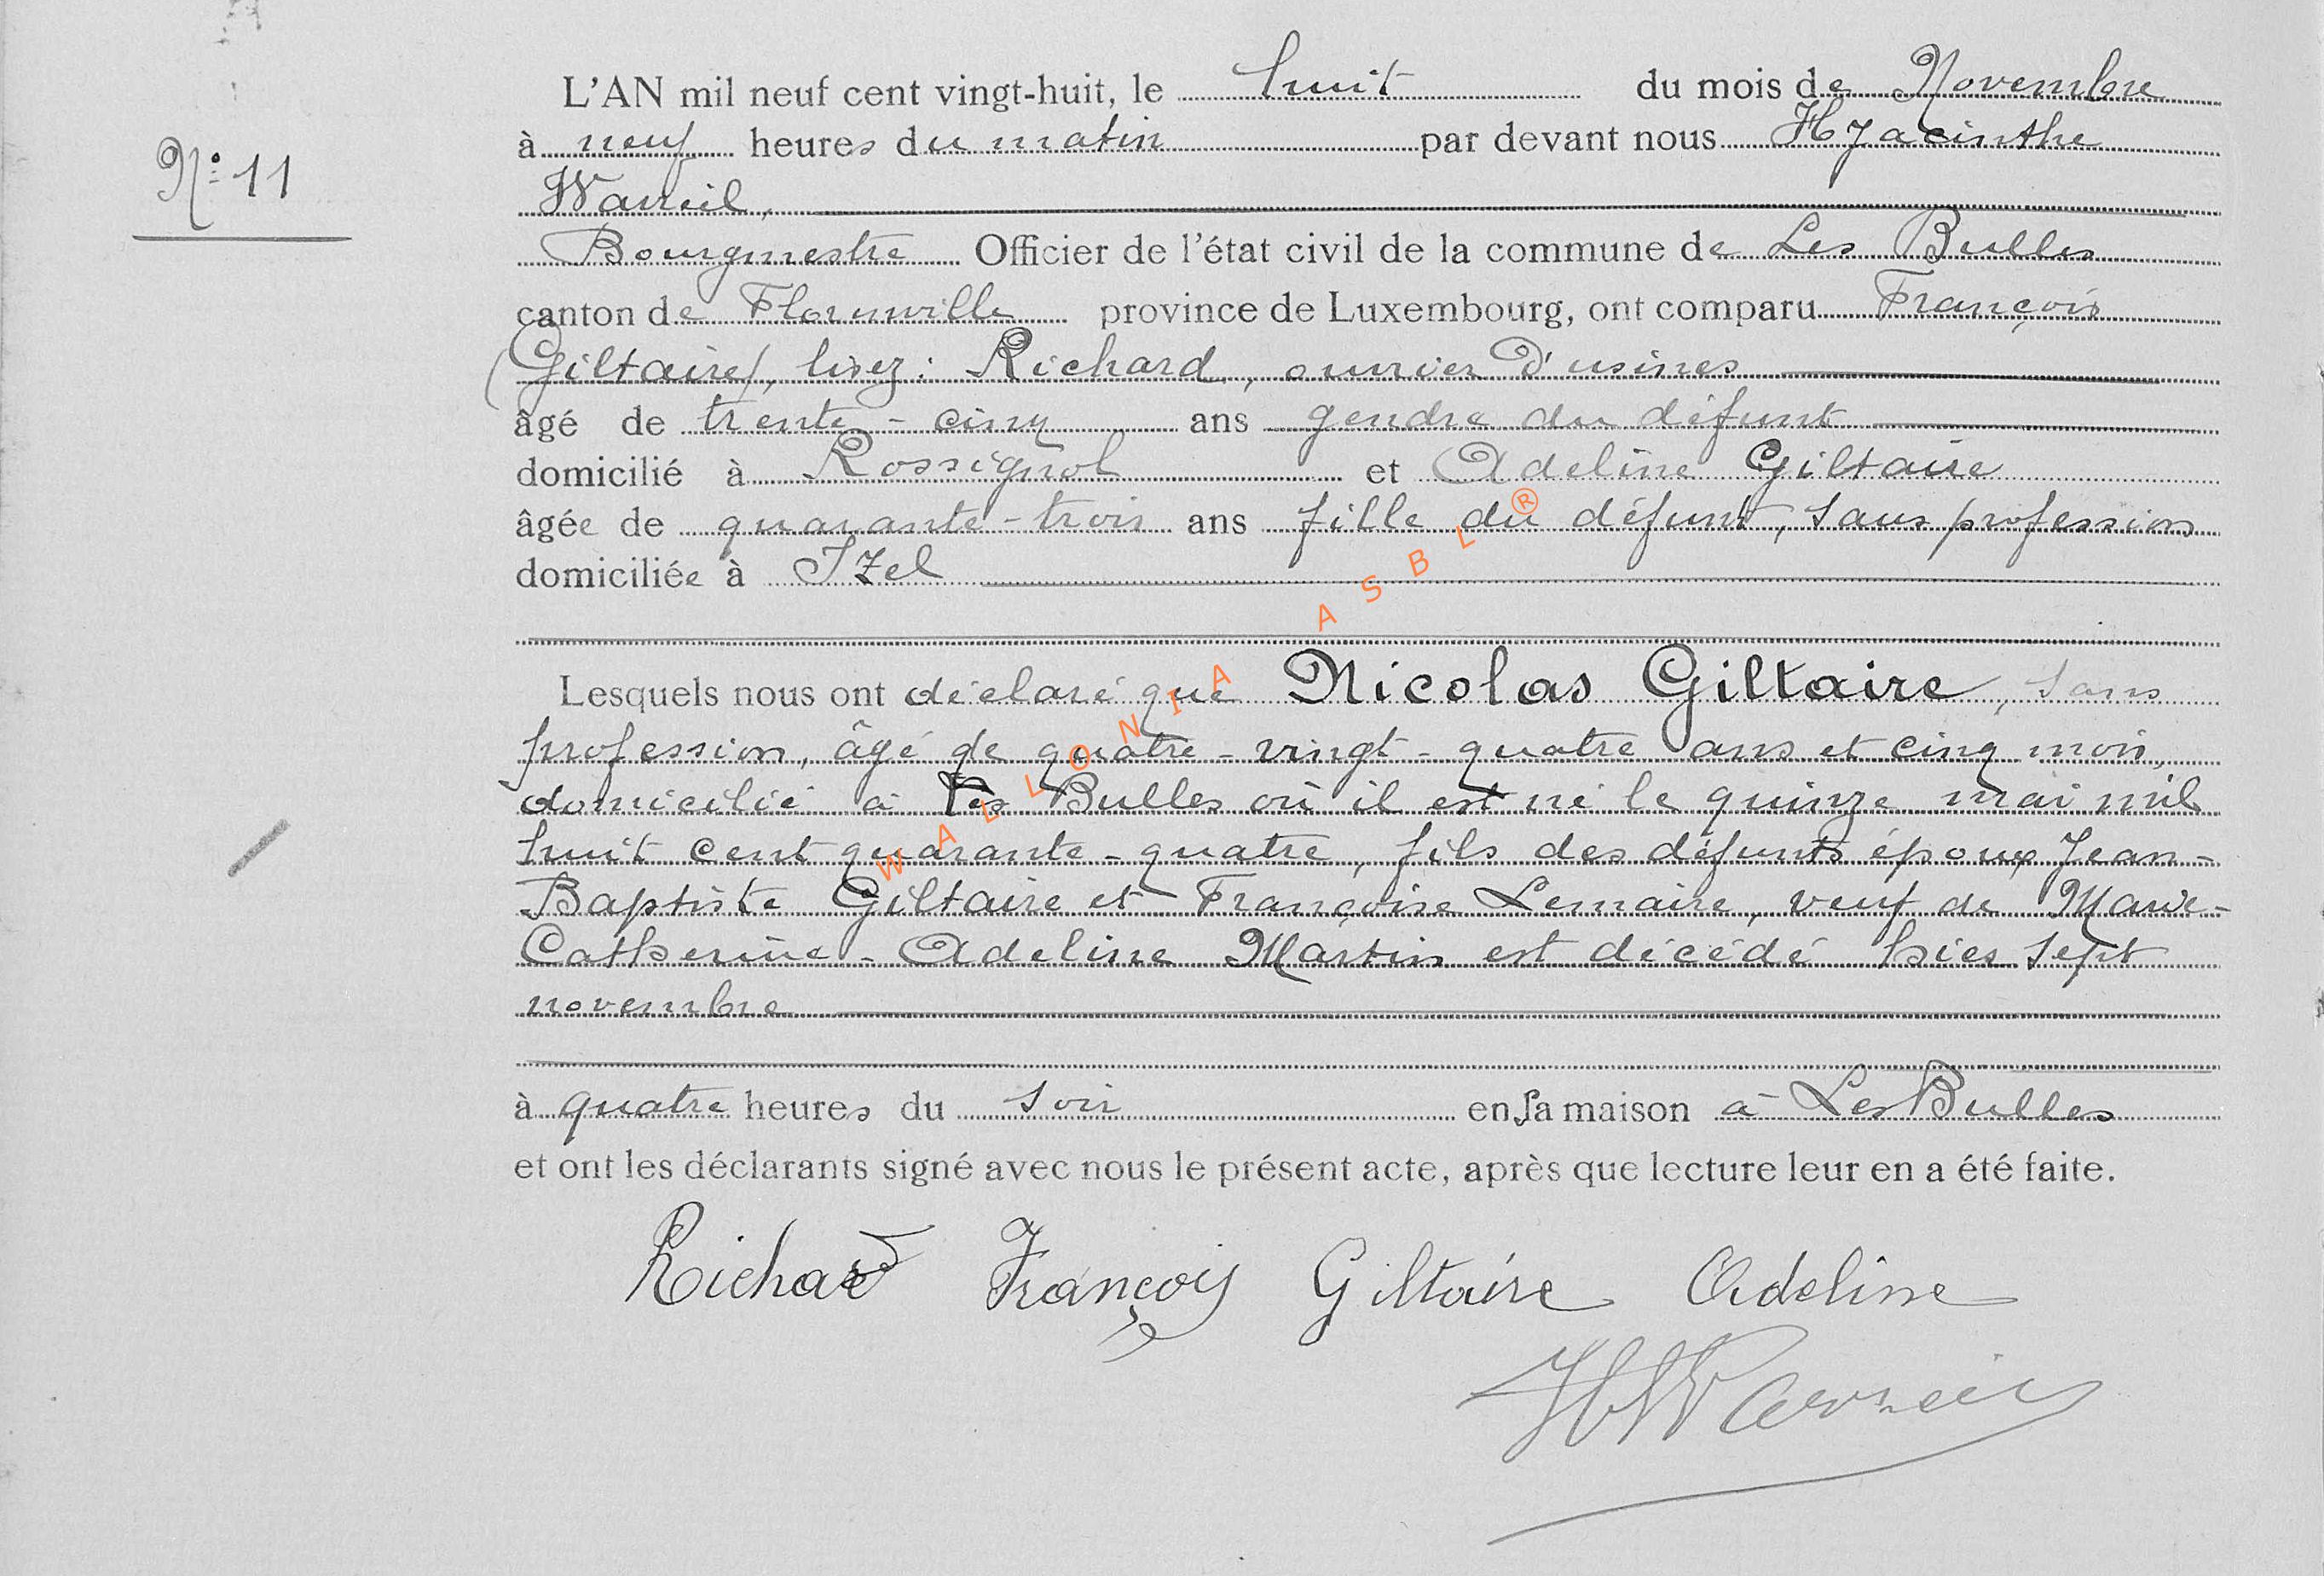 L'AN mil neuf cent vingt-huit, le huit du mois de Novembre
à neuf heures du matin par devant nous Hyacinthe
N° 11
Wavreil,
Bourgmestre Officier de l'état civil de la commune de Les Bulles
canton de Florenville province de Luxembourg, ont comparu François
(Giltaire), lisez : Richard, ouvrier d'usines
âgé de trente-cinq ans gendre du défunt
domicilié à Rossignol et Adeline Giltaire
âgée de quarante-trois ans fille du défunt, sans profession
domiciliée à Izel
Lesquels nous ont déclaré que Nicolas Giltaire, sans
profession, âgé de quatre-vingt-quatre ans et cinq mois,
domicilié à Les Bulles où il est né le quinze mai mil
huit cent quarante-quatre, fils des défunts époux Jean-
Baptiste Giltaire et Françoise Lemaire, veuf de Marie-
Catherine-Adeline Martin est décédé hier sept
novembre
à quatre heures du soir en sa maison à Les Bulles
et ont les déclarants signé avec nous le présent acte, après que lecture leur en a été faite.
Richard François Giltaire Adeline
WALLONIA ASBL ®